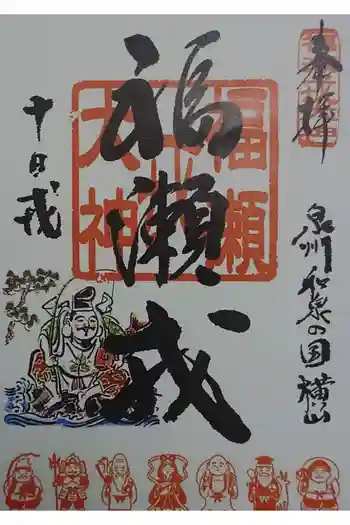 奉拝
泉州和泉の国横山
福瀬戎
十日戎